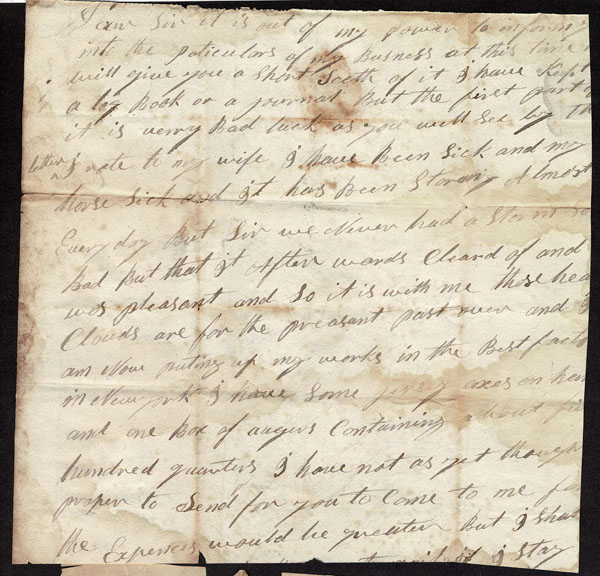 Dear Sir it is out of my power to inform y
into the paticulars of my Business at this time
will give you a Short Sceth of it I have Kept
a log Book or a journal But the first part of
it is verry Bad luck as you will See by the
letter I rote to my wife I have Been Sick and my
horse Sick and it has Been Stormy Almost
Every day But Sir we Never had a Storm So
Bad But that it After wards Cleard of and
was pleasant and So it is with me those hea
Clouds are for the preasant past over and I
am Now puting up my works in the Best facto
in Newyork I have Some axes on han
and one Box of augers Containing about fi
hundred quarters I have not as yet though
proper to Send for you to Come to me for
the Expences would be greater But I Shal
I Stay